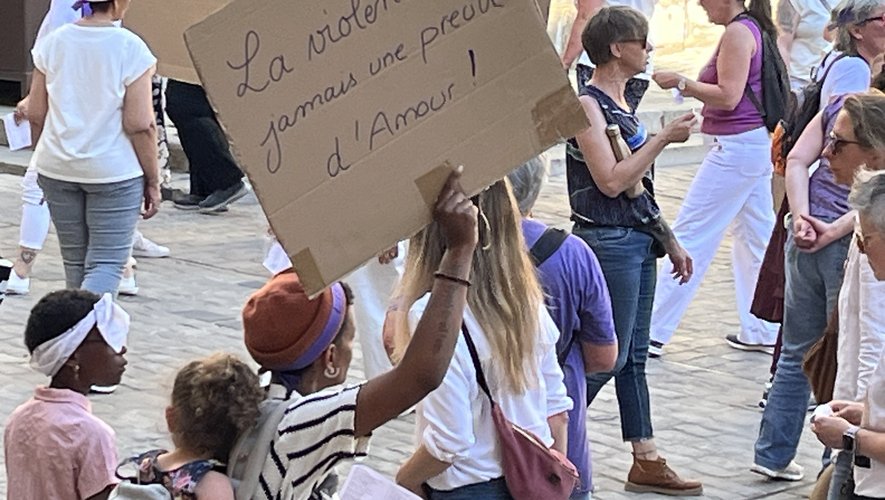 La violen
jamais une preuve
d'Amour !